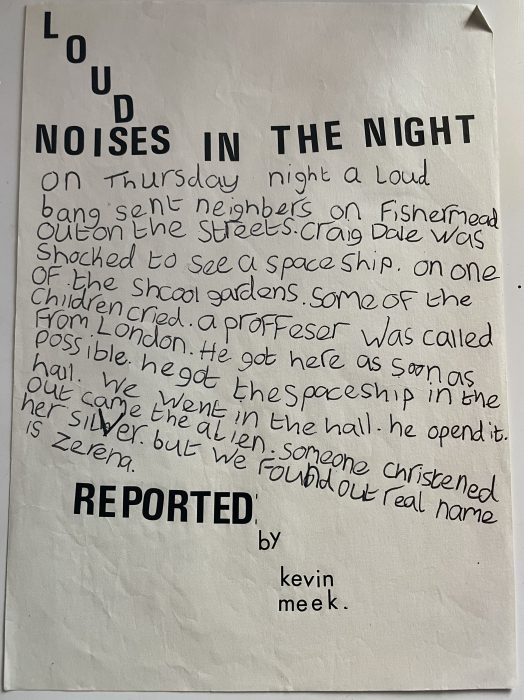 LOUD
NOISES IN THE NIGHT
on Thursday night a Loud
bang sent neighbers on Fishermead
out on the streets. Craig Dale was
shocked to see a space ship. on one
of the shcool gardens. some of the
children cried. a proffeser was called
from London. He got here as soon as
possible. he got the spaceship in the
hall. we went in the hall. he opend it.
out came the alien. someone christened
her silver. but we found out real name
is Zerena.
REPORTED
by
kevin
meek.